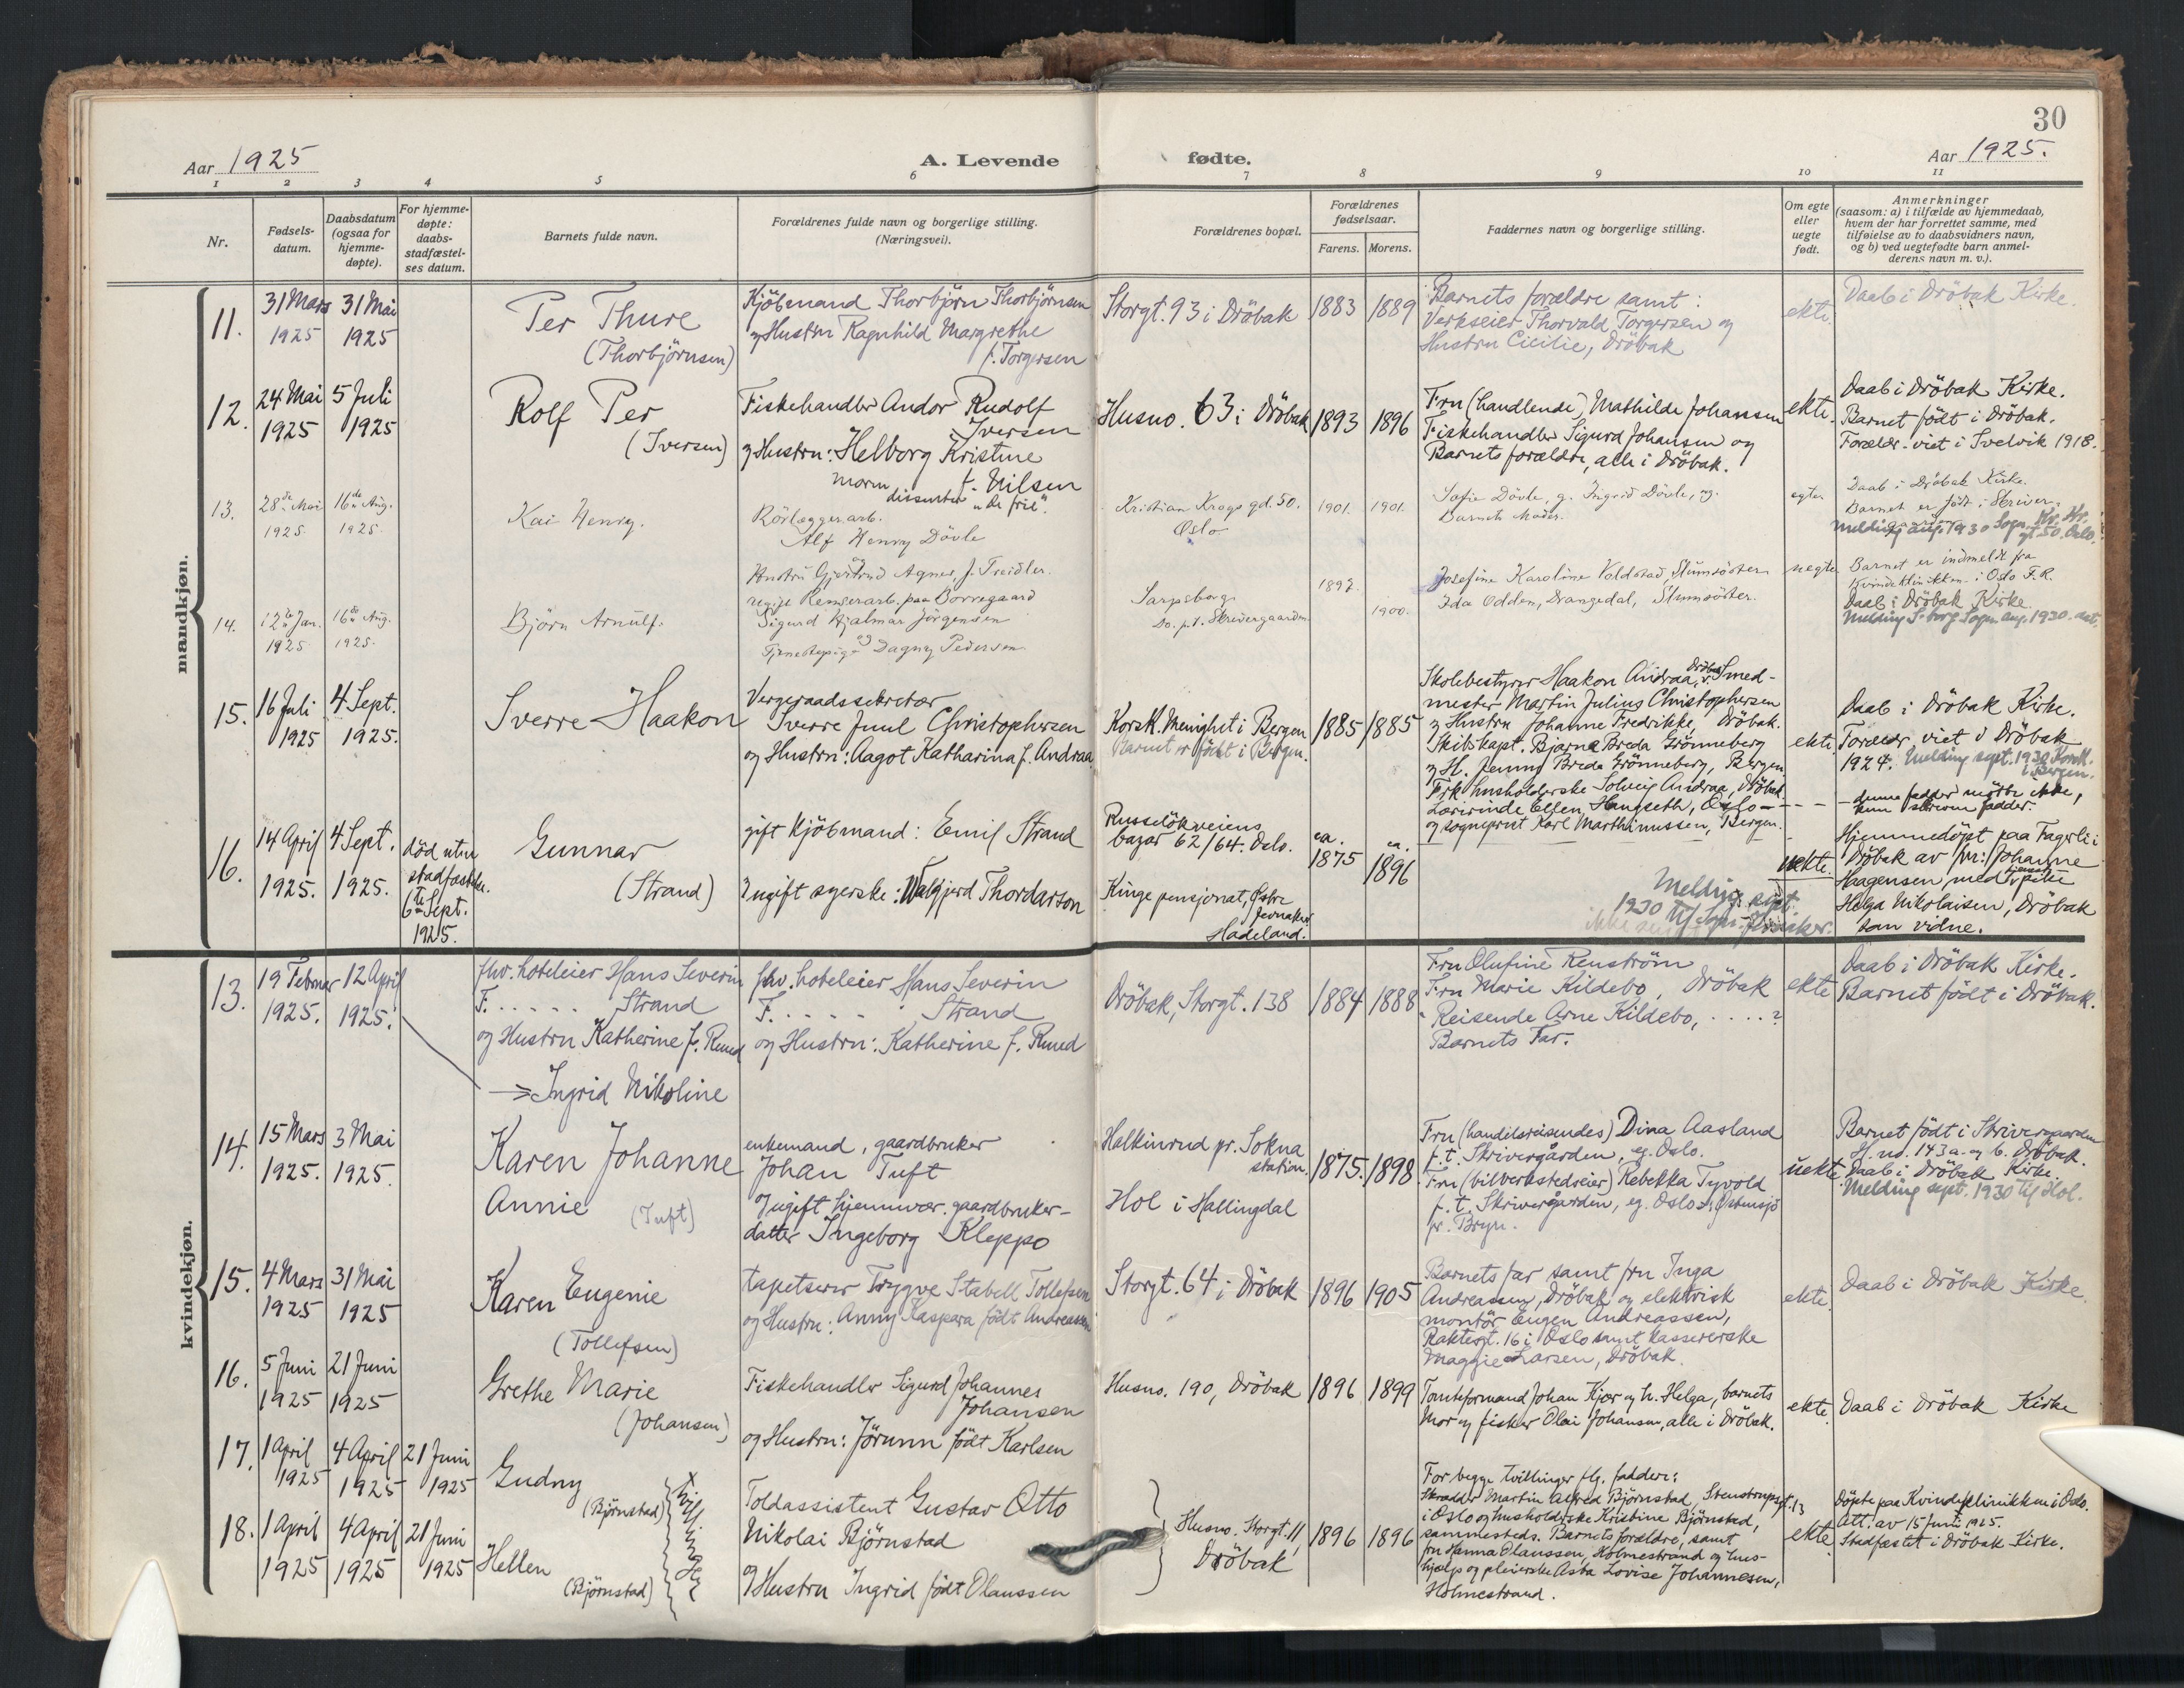 30
Aar 1925
A. Levende fødte.
Aar 1925.
1 2 3 4 5 6 7 8 9 10 11
Nr.
Fødsels-
datum.
Daabsdatum
(ogsaa for
hjemme-
døpte).
For hjemme-
døpte:
daabs-
stadfæstel-
ses datum.
Barnets fulde navn.
Forældrenes fulde navn og borgerlige stilling.
(Næringsvei).
Forældrenes bopæl.
Forældrenes
fødselsaar.
Farens. Morens.
Faddernes navn og borgerlige stilling.
Om egte
eller
uegte
født.
Anmerkninger
(saasom: a) i tilfælde av hjemmedaab,
hvem der har forrettet samme, med
tilføielse av to daabsvidners navn,
og b) ved uegtefødte barn anmel-
derens navn m. v.).
mandkjøn.
11.
31 Mars
1925
31 Mai
1925
Per Thure
(Thorbjörnsen)
Kjöbmand Thorbjörn Thorbjörnsen
og Hustru Ragnhild Margrethe
f. Torgersen
Storgt. 93 i Dröbak
1883
1889
Barnets forældre samt:
Verkseier Thorvald Torgersen og
Hustru Cicilie, Dröbak
ekte.
Daab i Dröbak Kirke.
12.
24 Mai
1925
5 Juli
1925
Rolf Per
(Iversen)
Fiskehandler Andor Rudolf
Iversen
og Hustru: Helborg Kristine
f. Nilsen
Husno. 63 i Dröbak
1893
1896
Fru (handlende) Mathilde Johanssen
Fiskehandler Sigurd Johansen og
Barnets forældre, alle i Dröbak.
ekte.
Daab i Dröbak Kirke.
Barnet födt i Dröbak.
Forældr. viet i Svelvik 1918.
13.
28de Mai
1925.
16de Aug.
1925.
Kai Henry.
Moren dissenter "De frie".
Rörlæggerarb.
Alf Henry Dövle
og
Hustru Gjertrud Agnes, f. Treidler.
Kristian Krogs gd. 50.
Oslo
1901.
1901.
Sofie Dövle, g. Ingrid Dövle, og
Barnets Moder.
egte.
Daab i Dröbak Kirke.
Barnet er födt i Skriver-
Melding aug. 1930 Sogn. Kr. Kr.
gt. 50. Oslo.
14.
12te Jan.
1925.
16de Aug.
1925.
Björn Arnulf.
ugift Renserarb. paa Borregaard
Sigurd Hjalmar Jörgensen
og
Tjenestepige Dagny Pedersen
Sarpsborg.
do. p.t. Skrivergaarden
1892.
1900.
Josefine Karoline Voldstad, Slumsöster.
Ida Odden, Drangedal, Slumsöster.
uegte
Barnet er indmeldt fra
Kvindeklinikken i Oslo F.R.
Daab i Dröbak Kirke.
Melding S-borg Sogn aug. 1930.
15.
16 Juli
1925
4 Sept.
1925.
Sverre Haakon
Vergeraadssekretær
Sverre Juul Christophersen
og Hustru: Aagot Katharina f. Andraa
Korsk. Menighet i Bergen
Barnet er födt i Bergen.
1885
1885
Skolebestyrer Haakon Andraa, Dröbak, Smed-
mester Martin Julius Christophersen
og Hustru Johanne Fredrikke, Dröbak.
Skibskapt. Bjarne Breda Grönneberg
og H. Jenny Breda Grönneberg, Bergen.
Frk. husholderske Solveig Andraa, Dröbak
Lærerinde Ellen Hangseth, Oslo - - - -
og sogneprest Karl Marthinussen, Bergen.
ekte
Daab i Dröbak Kirke.
Forældr. viet i Dröbak
1924. Melding sept. 1930 Korsk.
i Bergen.
- denne fadder mötte ikke,
kun skreven fadder.
16.
14 April
1925.
4 Sept.
1925.
död uten
stadfæstelse.
6te Sept.
1925.
Gunnar
(Strand)
gift Kjöbmand: Emil Strand
og ugift syerske: Walgjerd Thordarson
Russelökveiens
bazar 62/64. Oslo.
Kinge pensjonat, Østre
Jevnaker
Hadeland.
ca.
1875
ca.
1896
uekte.
Melding sept.
1930 til Sogn. Jevnaker.
Hjemmedöpt paa Fagerli i
Dröbak av fru: Johanne
Haagensen med tjenestepike
Helga Nikolaisen, Dröbak
som vidne.
kvindekjøn.
13.
19 Februar
1925.
12 April
1925.
fhv. hoteleier Hans Severin
F. . . . . . Strand
og Hustru Katherine f. Ruud
→ Ingrid Nikoline
fhv. hoteleier Hans Severin
F. . . . . . Strand
og Hustru: Katherine f. Ruud
Dröbak, Storgt. 138
1884
1888
Fru Olufine Renström
Fru Marie Kildebo, Dröbak
Reisende Arne Kildebo, . . . . ?
Barnets Far.
ekte
Daab i Dröbak Kirke.
Barnet födt i Dröbak.
14.
15 Mars
1925.
3 Mai
1925.
Karen Johanne
Annie (Tuft)
enkemand, gaardbruker
Johan Tuft
og ugift hjemmevær. gaardbruker-
datter Ingeborg Kleppo
Halkinrud pr. Sokna
station.
Hol i Hallingdal
1875.
1898.
Fru (handelsreisendes) Dina Aasland
p.t. Skrivergården, eg. Oslo.
Fru (bilverkstedeier) Rebekka Tyvold
p.t. Skrivergården, eg. Oslo, Östensjö
pr. Bryn.
uekte
Barnet födt i Skrivergaarden
H. no. 143 a. og b. Dröbak.
Daab i Dröbak Kirke.
Melding sept. 1930 til Hol.
15.
4 Mars
1925
31 Mai
1925
Karen Eugenie
(Tollefsen)
tapetserer Trygve Stabell Tollefsen
og Hustru: Anny Kaspara födt Andreassen
Storgt. 64 i Dröbak
1896
1905
Barnets far samt fru Inga
Andreassen, Dröbak og elektrisk
montör Eugen Andreassen,
16 i Oslo samt kassererske
Maggie Larsen, Dröbak.
ekte.
Daab i Dröbak Kirke.
16.
5 Juni
1925
21 Juni
1925
Grethe Marie
(Johansen)
Fiskehandler Sigurd Johannes
Johansen
og Hustru: Jörunn födt Karlsen
Husno. 190, Dröbak
1896
1899
Tomteformand Johan Kjær og h. Helga, barnets
Mor og fisker Olai Johansen, alle i Dröbak.
ekte.
Daab i Dröbak Kirke
17.
1 April
1925
4 April
1925
21 Juni
1925
Gudny
(Björnstad)
18.
1 April
1925
4 April
1925
21 Juni
1925
Hellen
(Björnstad)
Tvillinger
Toldassistent Gustav Otto
Nikolai Björnstad
og Hustru Ingrid födt Olaussen
Husno. Storgt. 11,
Dröbak
1896
1896
For begge tvillinger flg. faddere:
Skrædder Martin Alfred Björnstad, Stenstrupsgt. 13
i Oslo og husholderske Kristine Björnstad,
sammesteds. Barnets forældre, samt
fru Hanna Olaussen, Holmestrand og hus-
hjælp og pleierske Asta Lovise Johannesen,
Holmestrand.
ekte.
Döpte paa Kvindeklinikken i Oslo.
Att. av 15 Juni 1925.
Stadfæstet i Dröbak Kirke.